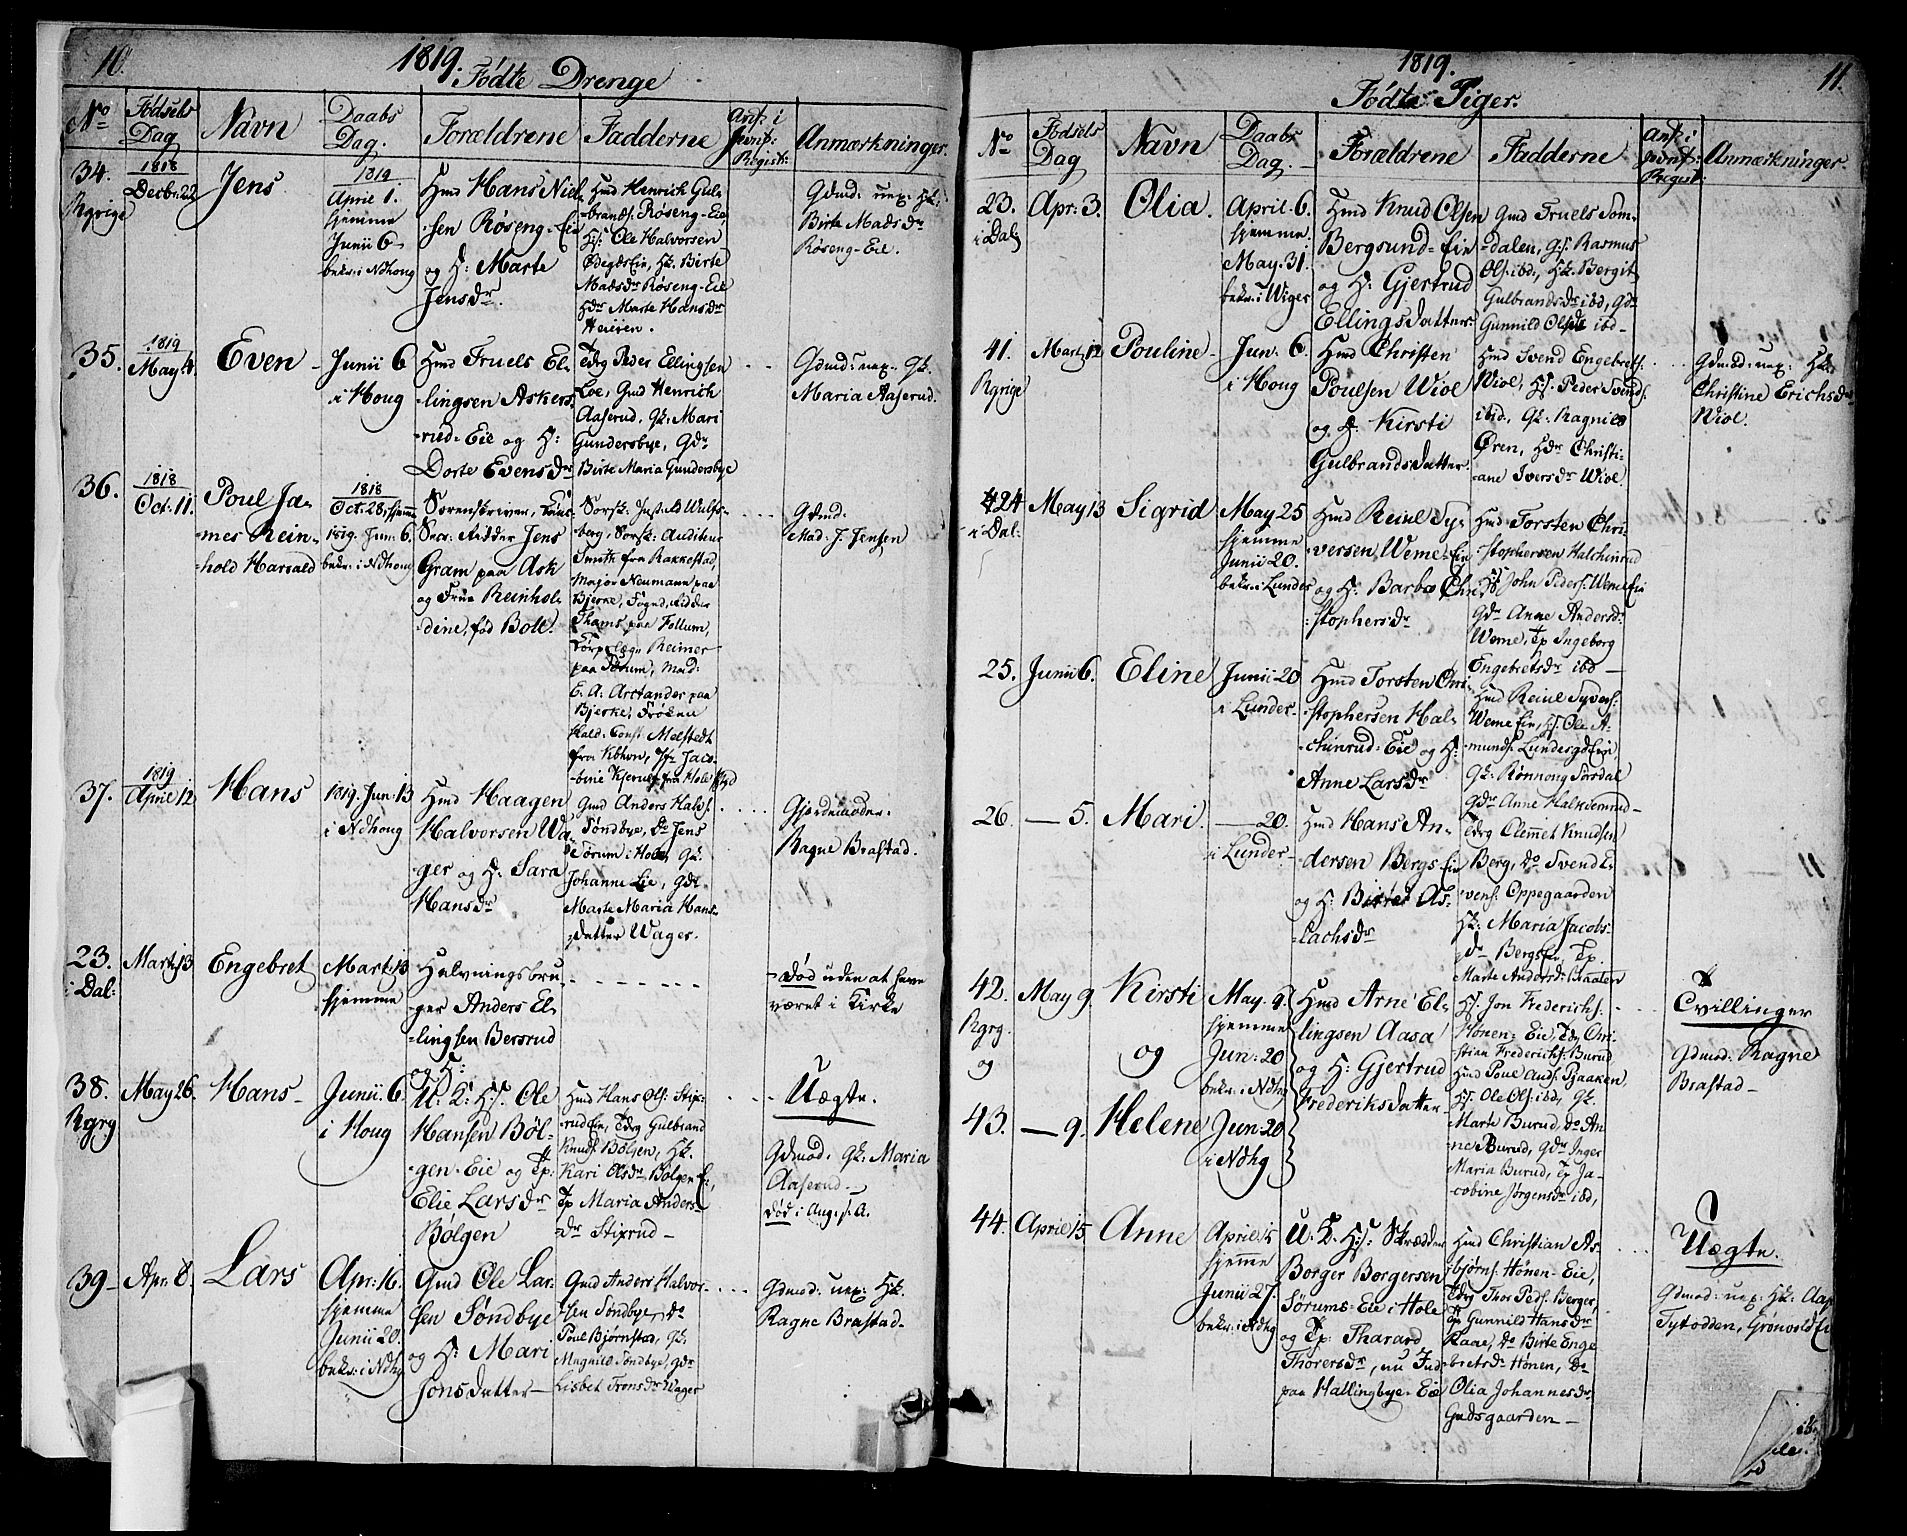 10.
1819.
Födte Drenge
No
Födsels
Dag
Navn
Daabs
Dag.
Forældrene
Fadderne
Anf: i
Jevnf:
Regist:
Anmærkninger.
34.
Rgrige
1818
Decbr: 22
Jens
1819
April 1.
hjemme
Junii 6
bekr: i Ndhoug
Hmd Hans Niel-
sen Røseng-Eie
og H: Marte
Jensdr.
Hmd Henrich Gul-
brands. Røseng-Eie
Hs. Ole Halvorsen
Ødegds Eie, Hk. Birte
Madsdr Røseng-Eie
Hdr Marte Hansdr
Heieren.
Gdmd: uex. Hk:
Birte Madsdr
Røseng-Eie.
35.
1819
May 4
Even
Junii 6
i Houg
Hmd Truels El-
lingsen Askers-
rud-Eie og H:
Dorte Evensdr
Tdrg Peder Ellingsen
Loe, Gmd Henrich
Aaserud, Gk: Mari
Gundersbye, Gdr
Birte Maria Gundersbye
Gdmd: uex. Gk.
Maria Aaserud.
36.
1818
Oct: 11.
Poul Ja-
mes Rein-
hold Harald
1818
Oct: 28, hjemme
1819. Jun: 6.
bekr: i Ndhoug
Sorenskriver, Cans-
Sea: Ridder Jens
Gram paa Ask
og Frue Reinhol-
dine, fød Boll.
Sorsk. Just. A Wulfs-
berg, Sorsk: Auditeur
Smith fra Rakkestad,
Major Neumann paa
Bjerke, Fogd, Ridder
Thams paa Follum,
Corpslæge Reimer
paa Tørum, Mad:
E. A. Arctander paa
Bjerke, Frøken
Hald: Const. Melstedt
fra Kbhvn, Jfr Jaco-
bine Kjerulf fra Hole
Gdmd:
Mad. J. Jensen
37.
1819
April 12
Hans
1819. Jun: 13
i Ndhoug
Hmd Haagen
Halvorsen Wa-
ger og H: Sara
Hansdr
Gmd Anders Halvs.
Søndbye, Do Jens
Sørum i Hole, Gk.
Johanne Lie, Gdr.
Marte Maria Hans-
datter Wager.
Gjordemoder:
Ragne Brastad.
23.
i Dal:
Mart: 13
Engebret
Mart: 13
hjemme
Halvningsbru-
ger Anders El-
lingsen Bersrud
og H:
død uden at have
været i Kirke
38.
Rgrg
May 26.
Hans
Junii 6.
i Houg
U. K: Hs. Ole
Hansen Böl-
gen-Eie og Tp:
Elie Larsdr
Bölgen
Hmd Hans Ols: Stix-
rud Eie, Tdrg Gulbrand
Knuds. Bölgen, Hk.
Kari Olsdr Bölgen Ei:,
Tp Maria Anders-
dr Stixrud
Uægte.
Gdmod: Gk: Maria
Aaserud.
død i Aug: s. A.
39
Apr: 8.
Lars
Apr: 16.
hjemme
Junii 20
bekr: i Ndhg
Gmd Ole Lar-
sen Søndbye
og H: Mari
Jonsdatter
Gmd Anders Halvor-
sen Søndbye, Do
Poul Bjørnstad, Gk.
Magnild Søndbye, Gdr
Lisbet Tronsdr Wager
Gdmod: uex: Hk.
Ragne Brastad.
1819.
11.
Födte Piger.
No
Födsels
Dag
Navn
Daabs
Dag.
Forældrene
Fadderne
Anf: i
Jevnf:
Regist:
Anmærkninger.
23.
i Dal
Apr: 3.
Olia.
April 6.
hjemme
May 31.
bekr: i Wiger
Hmd Knud Olsen
Bergsund-Eie
og H: Gjertrud
Ellingsdatter
Gmd Truels Som-
dalen, Gs. Rasmus
Ols: ibd, Hk. Bergit
Gulbrandsdr ibd, Gdr
Gunnild Olsdr ibd
41.
Rgrige
Mart: 12
Pouline
Jun: 6.
i Houg
Hmd Christen
Poulsen Wiol
og H. Kirsti
Gulbrandsdatter
Hmd Svend Engebrets.
Wiol, Hs. Peder Svends.
ibid, Gk: Ragnild
Øren, Hdr Christi-
ane Iversdr Wiol
Gdmod: uex: Hk
Christine Erichsdr
Wiol.
24
i Dal:
May 13
Sigrid
May 25
hjemme
Junii 20.
bekr: i Lunder
Hmd Reiul Sy-
versen Weme-Eie
og H: Barbo Chri-
stophersdr
Hmd Torsten Chri-
stophersen Halchinrud
Hs John Peders: Weme Eie
Gdr Anne Andersd:
Weme, Tp Ingeborg
Engebretsdr ibd
25.
Junii 6.
Eline
Junii 20
i Lunder
Hmd Torsten Chri-
stophersen Hal-
chinrud-Eie og H:
Anne Larsdr
Hmd Reiul Syvers.
Weme Eie, Hs. Ole A-
munds. Lundesgd Eie
Gk: Rønnoug Sørdal
Gdr Anne Halkdemrud
26.
5.
Mari.
20.
i Lunder
Hmd Hans An-
dersen Bergs Eie
og H: Birret As-
lachsdr
Tdrg Clemet Knudsen
Berg, Do Svend E-
vens. Oppegaarden
Hk: Maria Jacobs-
dr Bergs Eie, Tp.
Marte Andersdr Braaten
42.
Rgrg.
og
May 9.
Kirsti
og
May. 9.
hjemme
Jun: 20
bekr: i Ndhg
Hmd Arne El-
lingsen Aasa
og H: Gjertrud
Frederiksdatter
Hs. Jon Frederichs.
Hønen-Eie, Tdrg Chri-
stian Frederichs. Burud
Hmd Poul Ands. Bjaaken,
Hs. Ole Ols. ibd, Gk.
Marte Burud, Do An-
ne Burud, Gdr Inger
Maria Burud, Tp Ja-
cobine Jørgensdr ibd,
Tvillinger
Gdmod: Ragne
Brastad
43.
9.
Helene
Jun: 20
i Ndhg
44.
April 15
Anne
April 15
hjemme
Junii 27.
bekr: i Ndhg
U. K. Hs: Skrædder
Borger Borgersen
Sørums-Eie i Hole
og Tp: Tharard
Thorersdr, nu Ind.
paa Hallingbye-Eie
Hmd Christian As-
bjørns. Hønen-Eie,
Tdrg Thor Peds. Berger,
Tp Gunnild Hansdr
Raae, Do Birte Enge
bretsdr Hønen, Do
Olia Johannesdr
Gudsgaarden
Uægte.
Gdmod: uex: Hk: Aas
Tytodden, Grönvold Ei